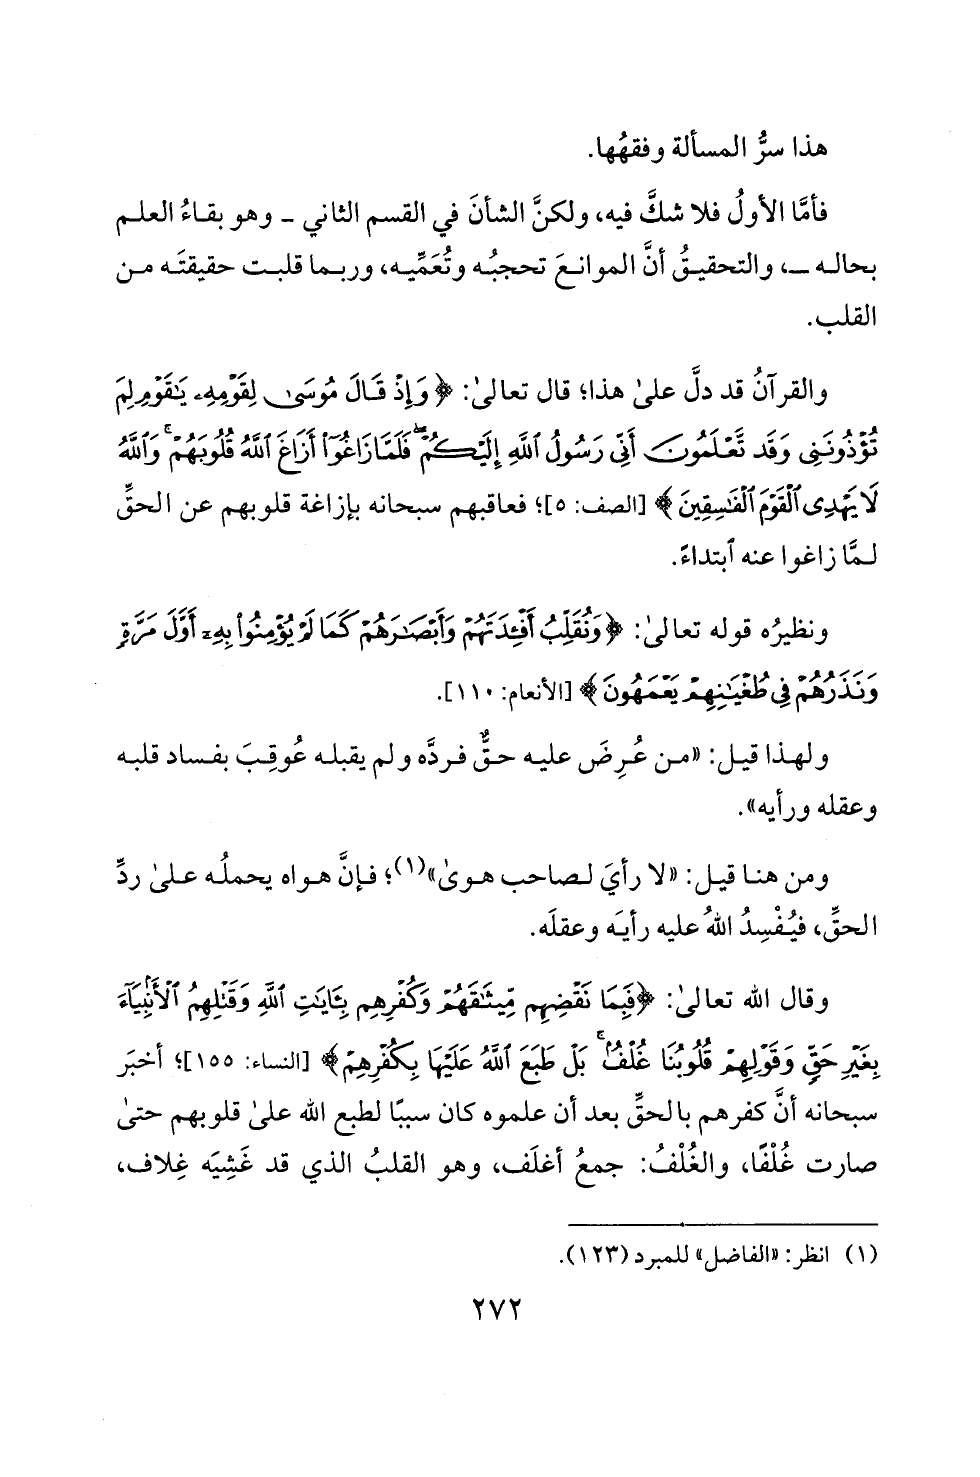 هذا سرُّ المسألة وفقهُها.
فأمَّا الأولُ فلا شكَّ فيه، ولكنَّ الشأنَ في القسم الثاني – وهو بقاءُ العلم
بحاله –، والتحقيقُ أنَّ الموانعَ تحجبُه وتُعَمِّيه، وربما قلبت حقيقتَه من
القلب.
والقرآنُ قد دلَّ علىٰ هذا؛ قال تعالىٰ: ﴿وَإِذْ قَالَ مُوسَىٰ لِقَوْمِهِۦ يَٰقَوْمِ لِمَ
تُؤْذُونَنِى وَقَد تَّعْلَمُونَ أَنِّى رَسُولُ ٱللَّهِ إِلَيْكُمْ ۖ فَلَمَّا زَاغُوٓا۟ أَزَاغَ ٱللَّهُ قُلُوبَهُمْ ۚ وَٱللَّهُ
لَا يَهْدِى ٱلْقَوْمَ ٱلْفَٰسِقِينَ﴾ [الصف: ٥]؛ فعاقبهم سبحانه بإزاغة قلوبهم عن الحقِّ
لمَّا زاغوا عنه ٱبتداءً.
ونظيرُه قوله تعالىٰ: ﴿وَنُقَلِّبُ أَفْـِٔدَتَهُمْ وَأَبْصَٰرَهُمْ كَمَا لَمْ يُؤْمِنُوا۟ بِهِۦٓ أَوَّلَ مَرَّةٍ
وَنَذَرُهُمْ فِى طُغْيَٰنِهِمْ يَعْمَهُونَ﴾ [الأنعام: ١١٠].
ولهذا قيل: «من عُرِضَ عليه حقٌّ فردَّه ولم يقبله عُوقِبَ بفساد قلبه
وعقله ورأيه».
ومن هنا قيل: «لا رأيَ لصاحب هوىٰ»(١)؛ فإنَّ هواه يحملُه علىٰ ردِّ
الحقِّ، فيُفْسِدُ اللهُ عليه رأيَه وعقلَه.
وقال الله تعالىٰ: ﴿فَبِمَا نَقْضِهِم مِّيثَٰقَهُمْ وَكُفْرِهِم بِـَٔايَٰتِ ٱللَّهِ وَقَتْلِهِمُ ٱلْأَنۢبِيَآءَ
بِغَيْرِ حَقٍّ وَقَوْلِهِمْ قُلُوبُنَا غُلْفٌۢ ۚ بَلْ طَبَعَ ٱللَّهُ عَلَيْهَا بِكُفْرِهِمْ﴾ [النساء: ١٥٥]؛ أخبَر
سبحانه أنَّ كفرهم بالحقِّ بعد أن علموه كان سببًا لطبع الله علىٰ قلوبهم حتىٰ
صارت غُلْفًا، والغُلْفُ: جمعُ أغلَف، وهو القلبُ الذي قد غَشِيَه غِلاف،
(١) انظر: «الفاضل» للمبرد (١٢٣).
٢٧٢